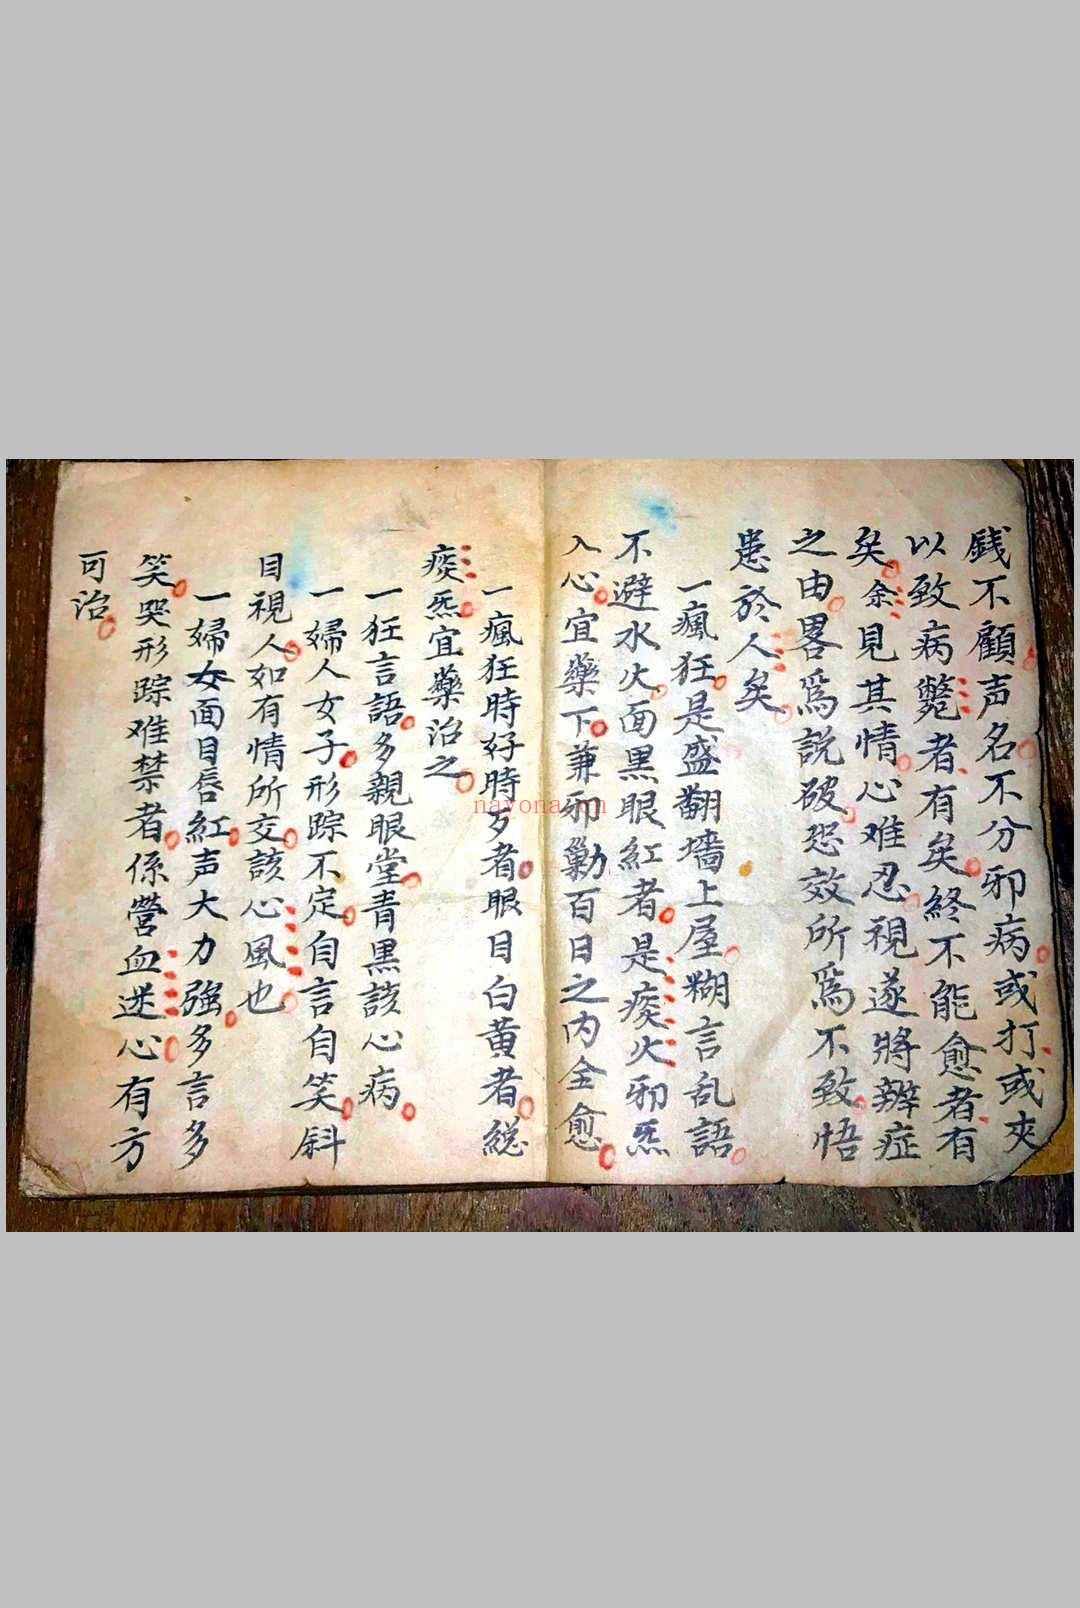 銭不顧声名不分邪病或打或夾
以致病斃者有矣終不能愈者有
矣余見其情心难忍視遂將辨症
之由畧爲說破恐效所爲不致悟
患於人矣
一瘋狂是盛翻墻上屋糊言乱語
不避水火面黑眼紅者是痰火邪炁
入心宜藥下兼邪勦百日之内全愈
一瘋狂時好時歹者眼目白黄者総
痰炁宜藥治之
一狂言語多親眼堂青黑該心病
一婦人女子形踪不定自言自笑斜
目視人如有情所交該心風也
一婦女面目唇紅声大力強多言多
笑哭形踪难禁者係營血迷心有方
可治
nayona.cn